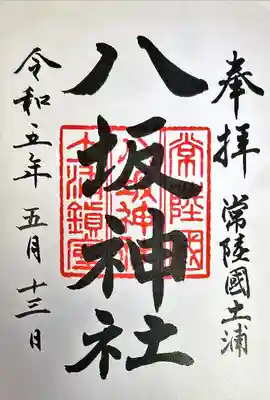 奉拝 常陸國土浦
八坂神社
令和五年 五月 十三日
常陸國
八坂神社
土浦鎮守